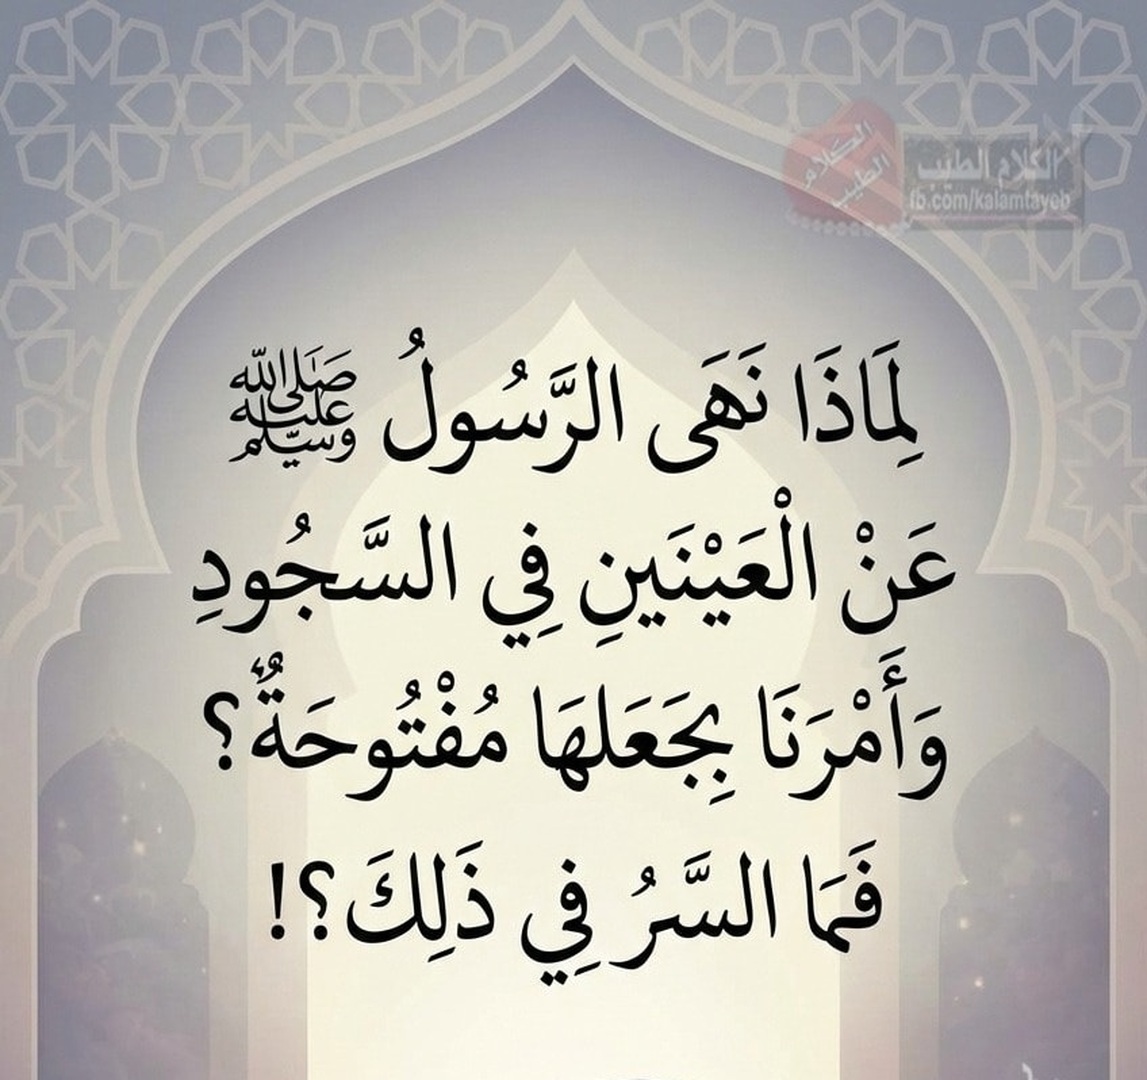 الكلام الطيب
الكلام الطيب
fb.com/kalamtayeb
لِمَاذَا نَهَى الرَّسُولُ ﷺ
عَنْ الْعَيْنَينِ فِي السَّجُودِ
وَأَمْرَنَا بِجَعَلهَا مُفْتُوحَةٌ؟
فَمَا السَّرُ فِي ذَلِكَ؟!